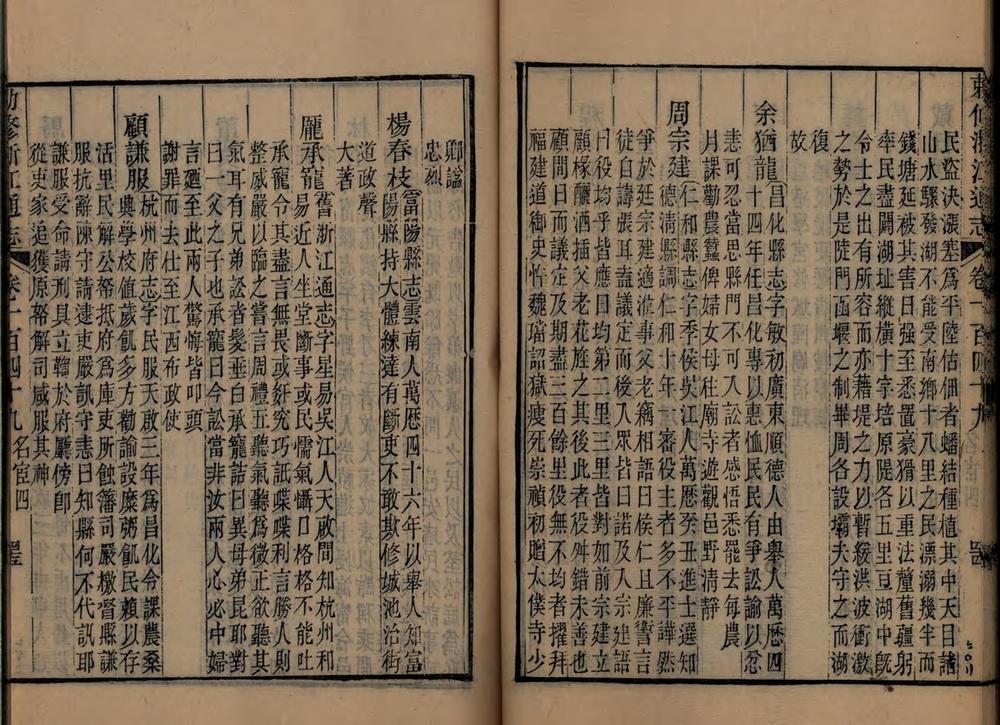 敕修浙江通志 卷一百四十九
民盜決漲塞爲平陸佔佃者蟠結種植其中天目諸
山水驟發湖不能受南鄉十八里之民漂溺幾半而
錢塘延被其害日強至悉置豪猾以重法釐舊疆躬
率民盡闢湖址縱橫十字培原隄各五里亘湖中旣
令士之出有所容而亦藉堤之力以暫緩洪波衝激
之勢於是陡門函堰之制畢周各設壩夫守之而湖
復
故
余猶龍昌化縣志字敏初廣東順德人由舉人萬歷四
十四年任昌化專以惠恤民民有爭訟諭以忍
恚可忍當思縣門不可入訟者感悟悉罷去每農
月課勸農蠶俾婦女毋往廟寺遊觀邑野清靜
周宗建仁和縣志字季侯吳江人萬歷癸丑進士選知
德清縣調仁和十年一審役主者多不平譁然
爭於廷宗建適涖事父老竊相語曰侯仁且廉訾言
徒自譸張耳盍議定而後入眾皆曰諾及入宗建語
曰役均乎皆應曰均第二里三里皆對如前宗建立
顧椽釃酒插父老花旌之其後此者役舛錯未善也
顧閒日而議定及期盡三百餘里役無不均者擢拜
福建道御史忤魏璫詔獄瘦死崇禎初贈太僕寺少
卿諡
忠烈
楊春枝富陽縣志雲南人萬歷四十六年以舉人知富
陽縣持大體練達有斷吏不敢欺修城池治街
道政聲
大著
龐承寵舊浙江通志字星易吳江人天啟間知杭州和
易近人坐堂斷事或民懦氣懾口格格不能吐
承寵令其盡言無畏或奸究巧詆喋喋利言勝人則
整威嚴以臨之嘗言周禮五聽氣聽爲微正欲聽其
氣耳有兄弟訟者髮垂白承寵詰曰異母弟昆耶對
曰一父之子也承寵曰今訟當非汝兩人心必中婦
言廼至此兩人驚悔皆叩頭
謝罪而去仕至江西布政使
顧謙服杭州府志字民服天啟三年爲昌化令課農桑
典學校值歲飢多方勸諭設糜粥飢民賴以存
活里民解公帑抵府爲庫吏所蝕藩司嚴檄督縣謙
服抗辭陳守請逮吏嚴訊守恚曰知縣何不代訊耶
謙服受命請刑具立鞫於府廳傍卽
從吏家追獲原帑解司咸服其神
敕修浙江通志 卷一百四十九 名宦四